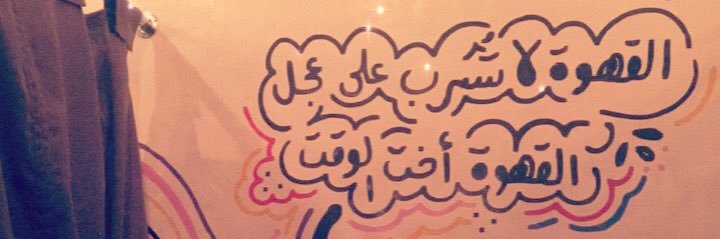 القهوة لا تُشرب على عجل
القهوة أخت الوقت